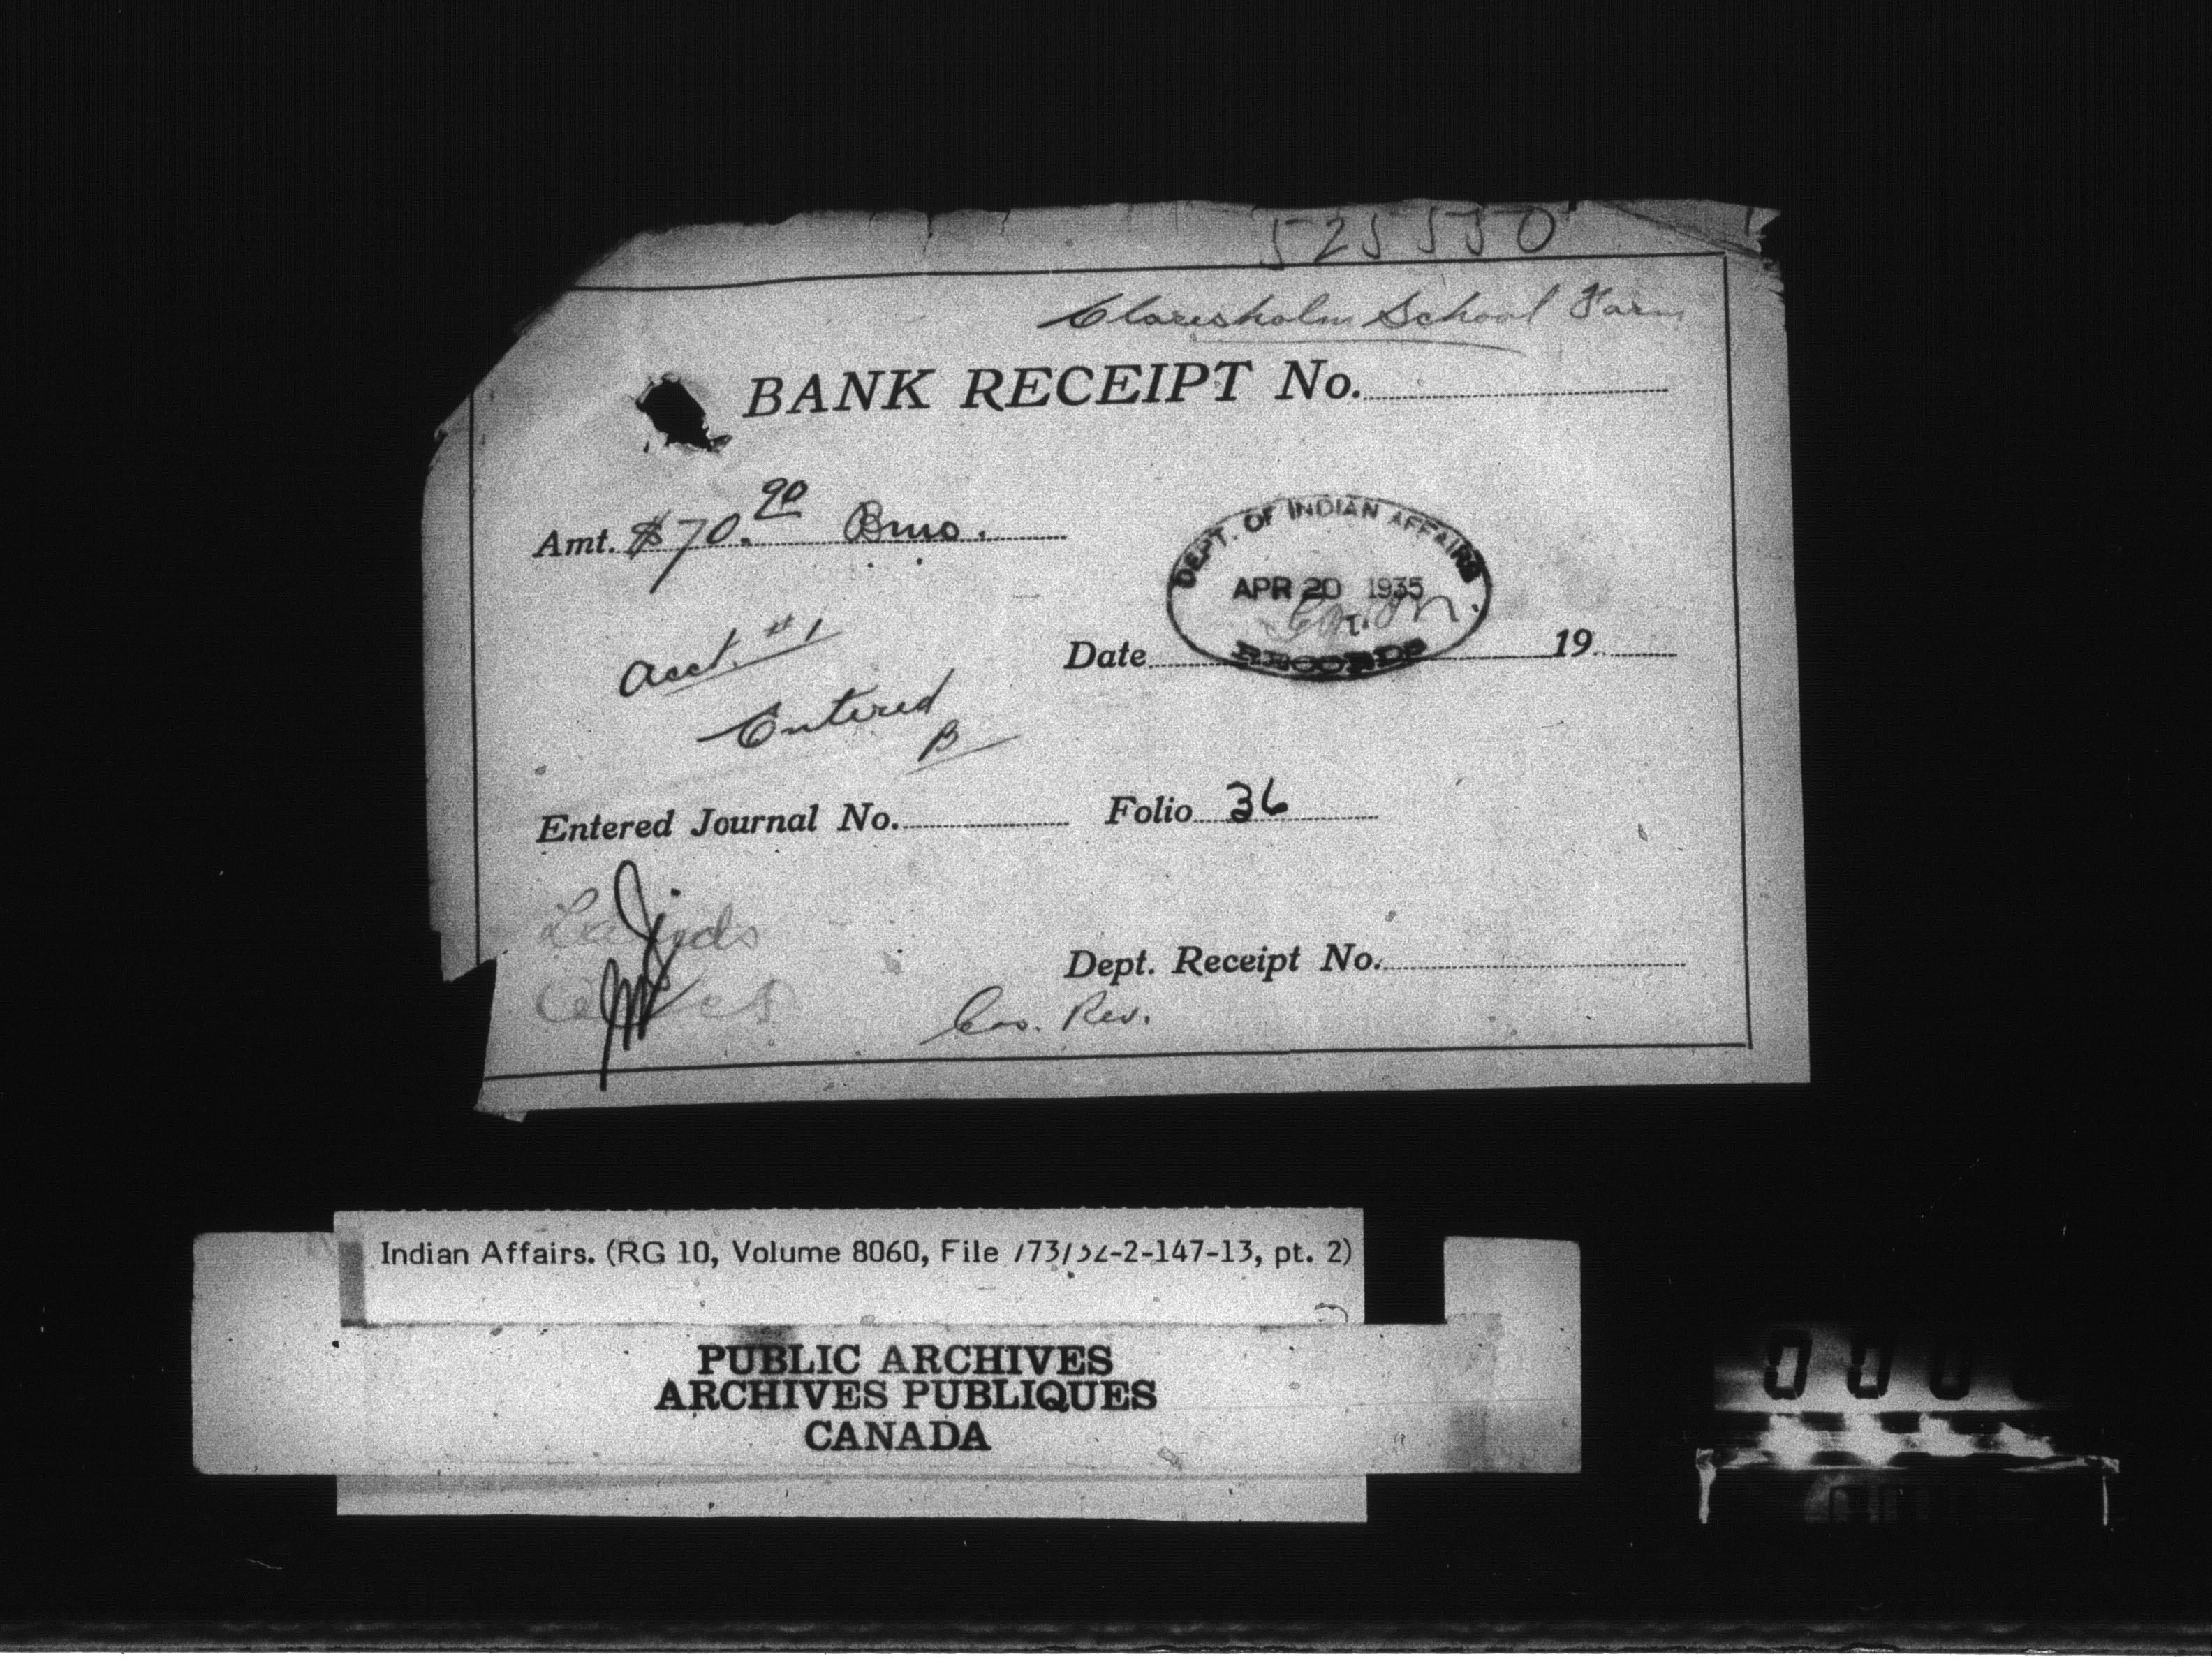 525550
Claresholm School Farm
BANK RECEIPT No.
Amt. $70.90 Bmo.
DEPT. OF INDIAN AFFAIRS
APR 20 1935
RECORDS
Date 19
Acct. #1
Entered
B
Entered Journal No. Folio 36
Dept. Receipt No.
Cas. Rev.
Indian Affairs. (RG 10, Volume 8060, File /73/32-2-147-13, pt. 2)
PUBLIC ARCHIVES
ARCHIVES PUBLIQUES
CANADA